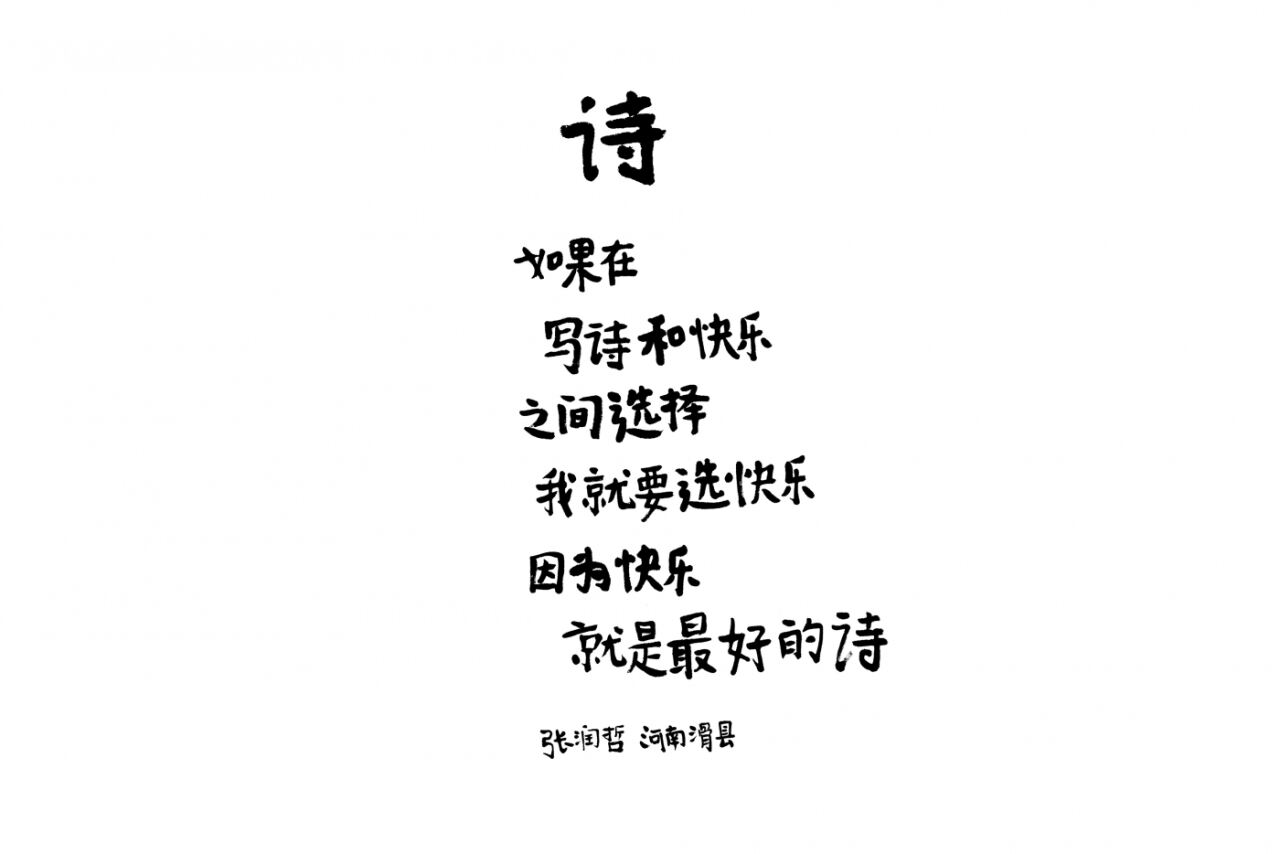 诗
如果在
写诗和快乐
之间选择
我就要选快乐
因为快乐
就是最好的诗
张润哲 河南滑县